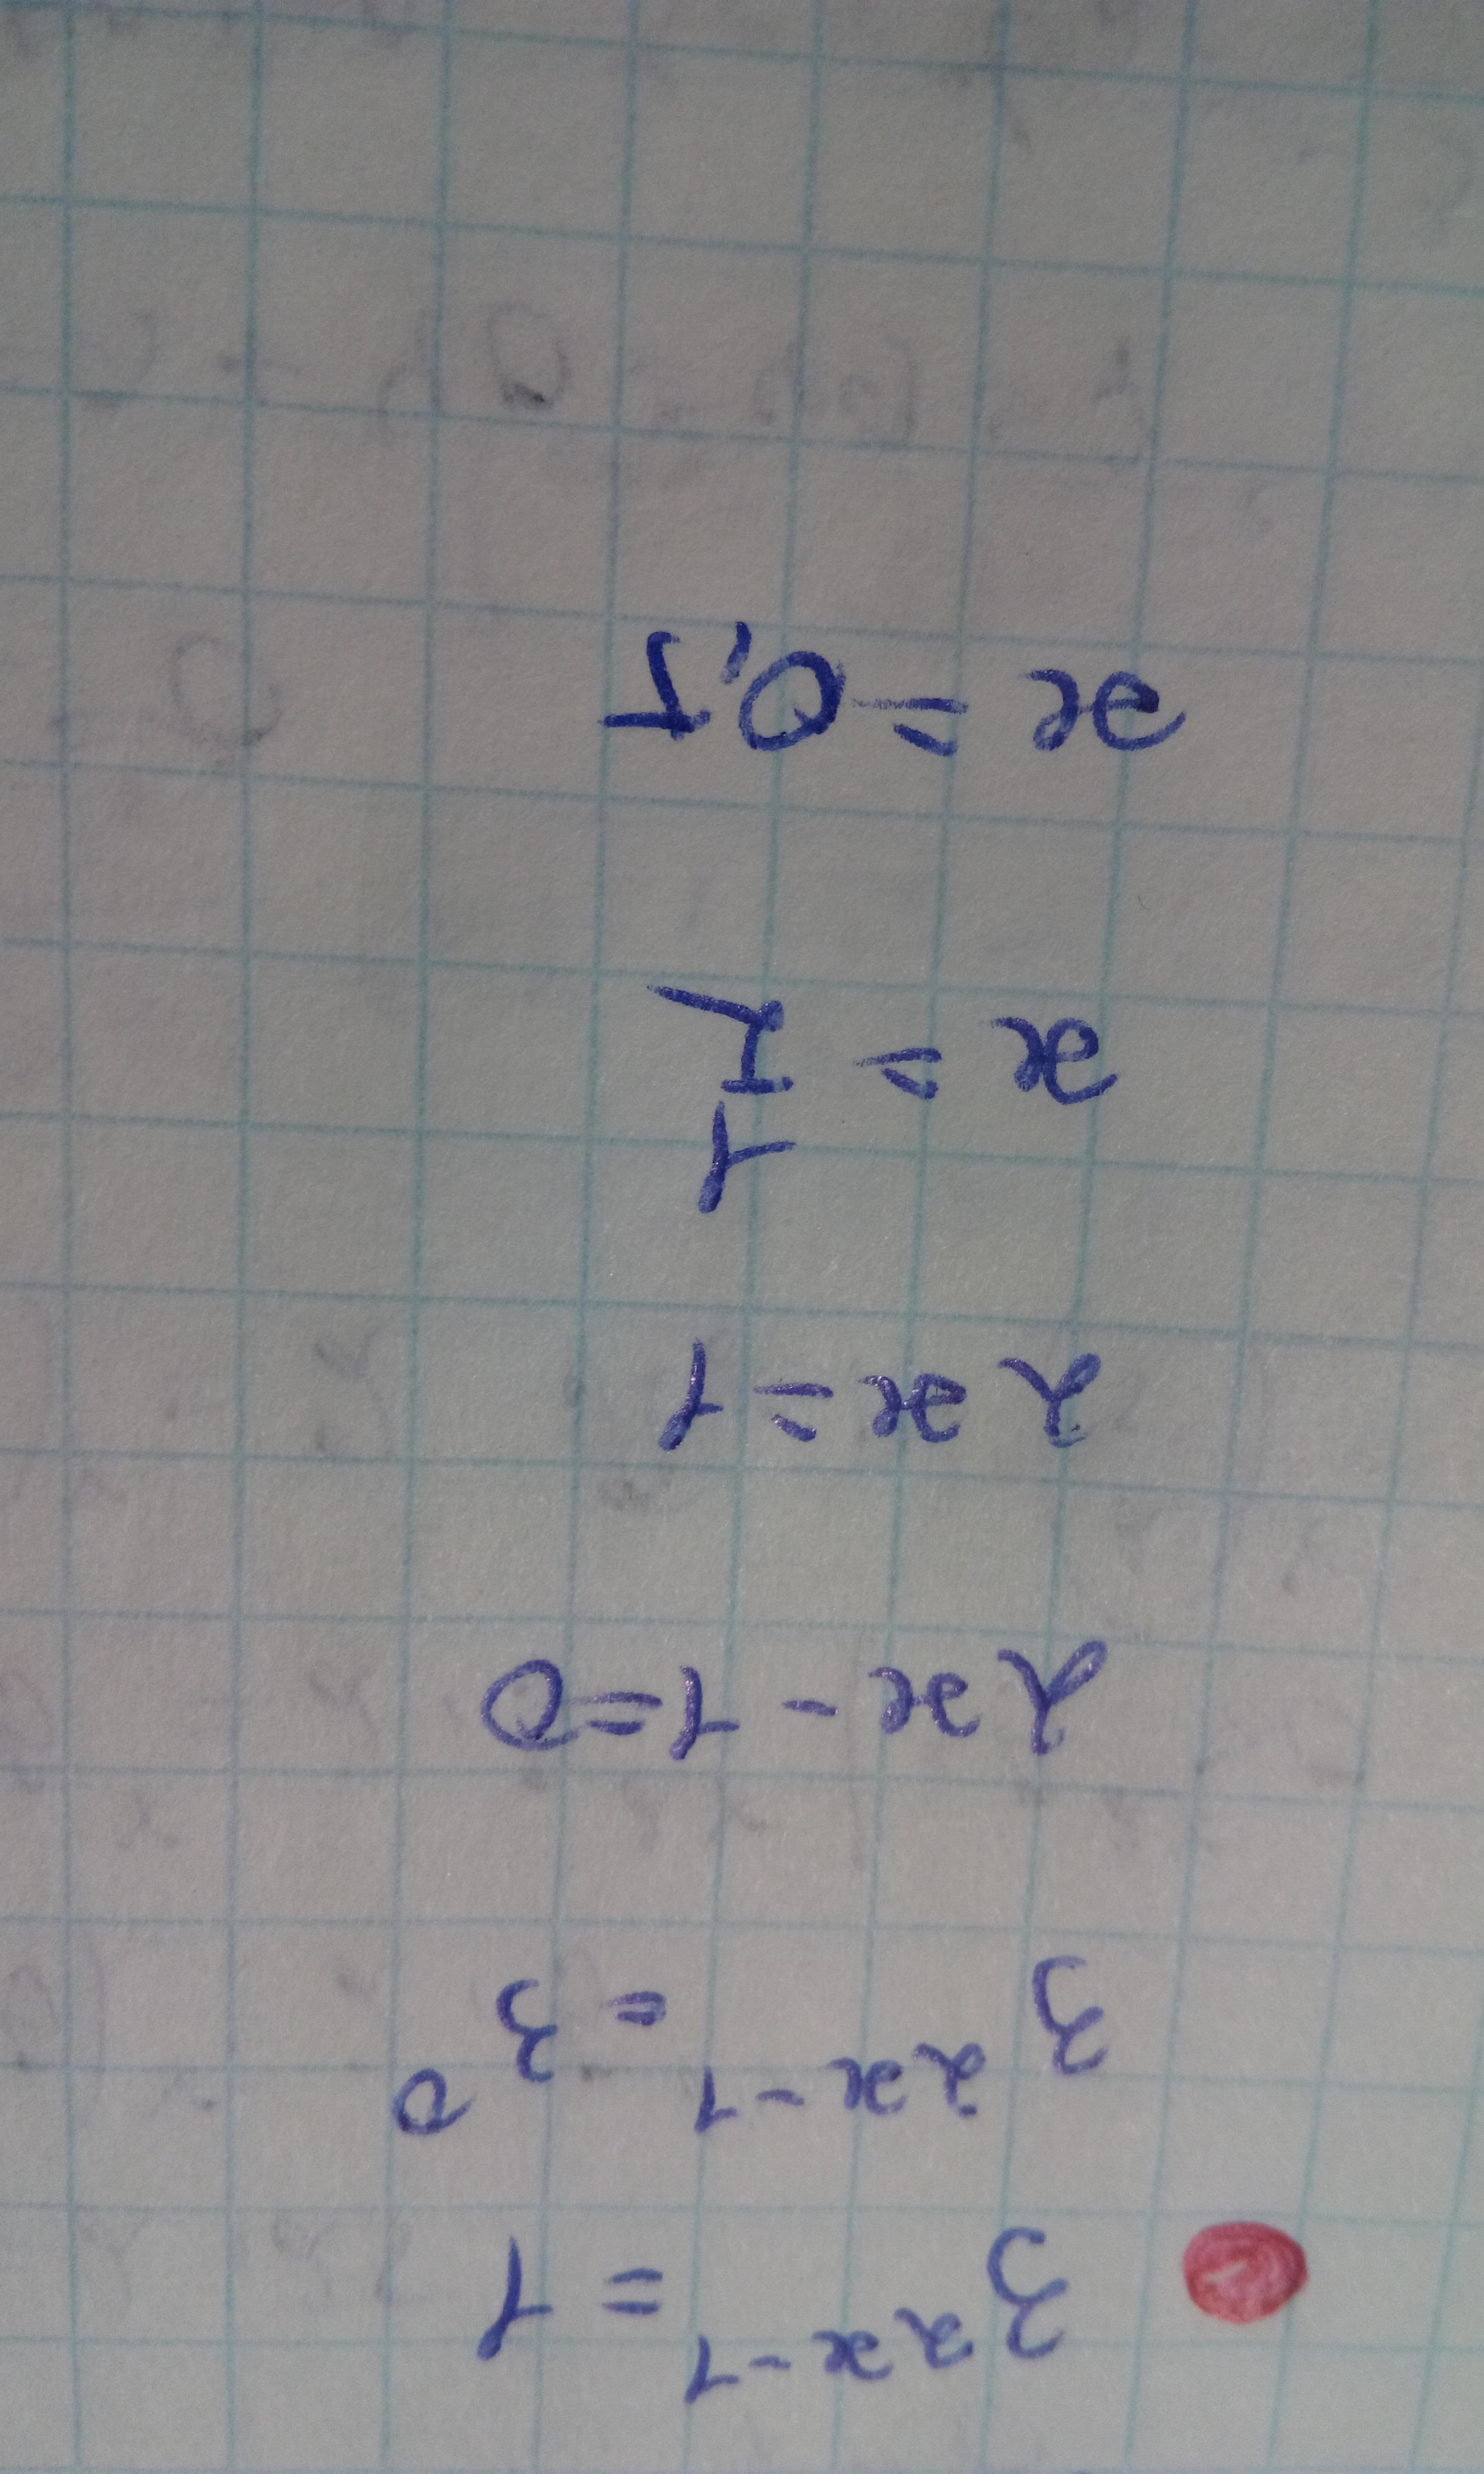 3²ˣ⁻¹ = 1
3²ˣ⁻¹ = 3⁰
2x - 1 = 0
2x = 1
x = 1/2
x = 0,5